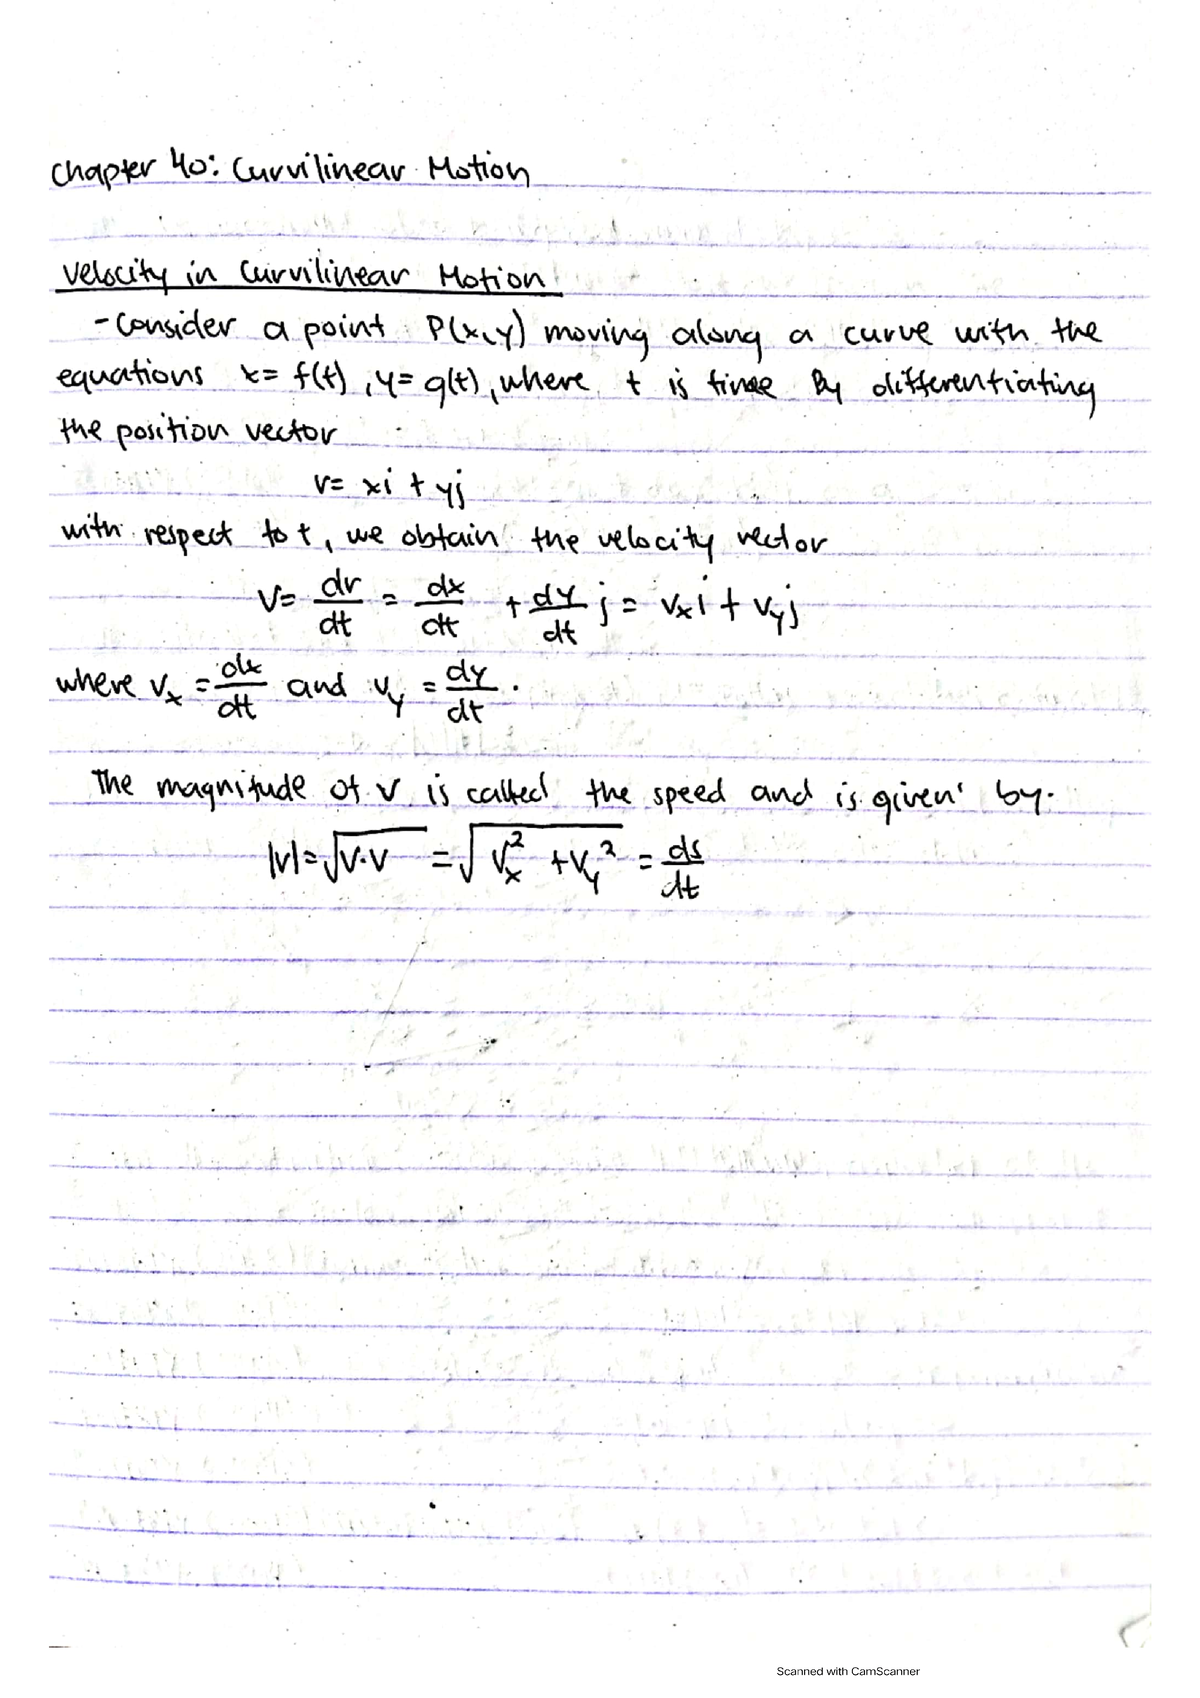 Chapter 40: Curvilinear Motion
Velocity in Curvilinear Motion
- Consider a point P(x,y) moving along a curve with the
equations x= f(t), y= g(t), where t is time By differentiating
the position vector
r= xi + yj
with respect to t, we obtain the velocity vector
V= dr/dt = dx/dt + dy/dt j = Vxi + Vyj
where Vx = dx/dt and Vy = dy/dt.
The magnitude of V is called the speed and is given by:
|V|=√V·V = √Vx² + Vy² = ds/dt
Scanned with CamScanner